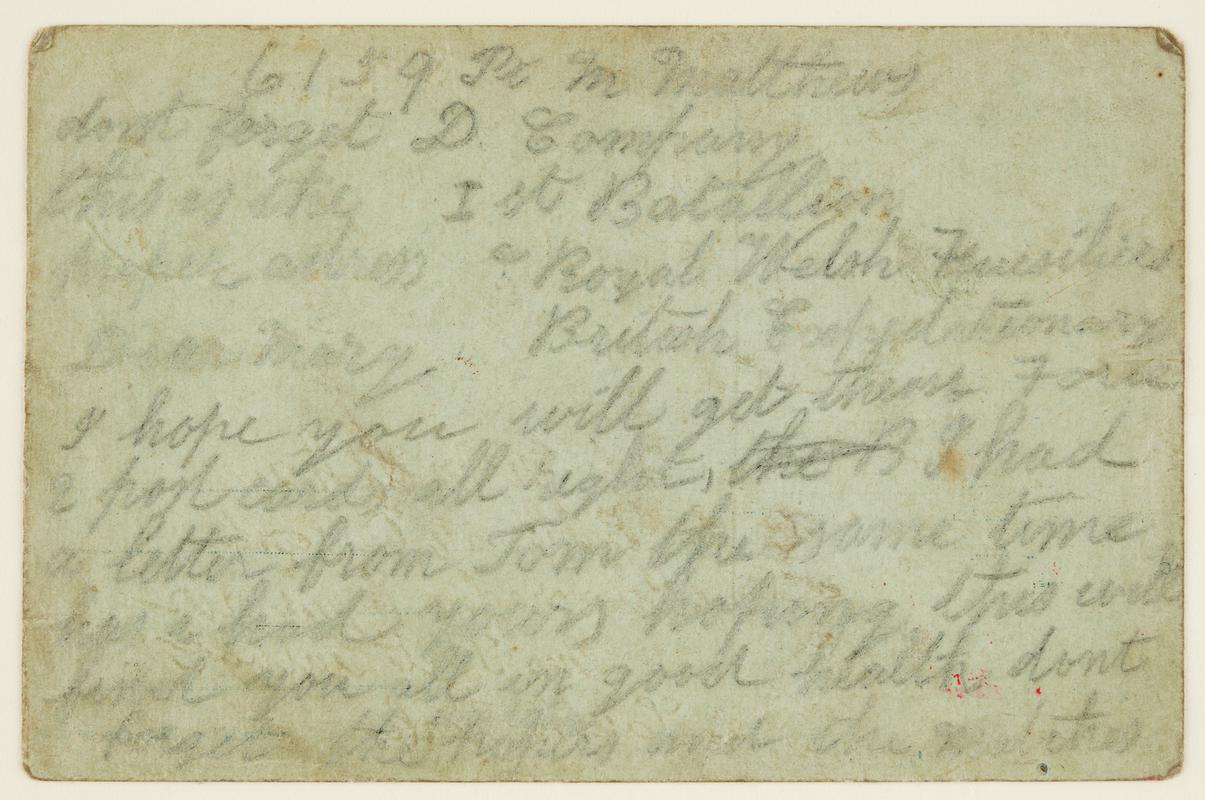 6159 Pt M Matthews
dont forget D. Company
this is the I st Batallion
proper adress Royal Welsh Fusiliers
Dear Mary British Expydationary
I hope you will get these Force
2 post cards all right, the B I had
a letter from Tom the same time
has I had yours hoping this will
find you all in good health dont
forget the papers and the matches